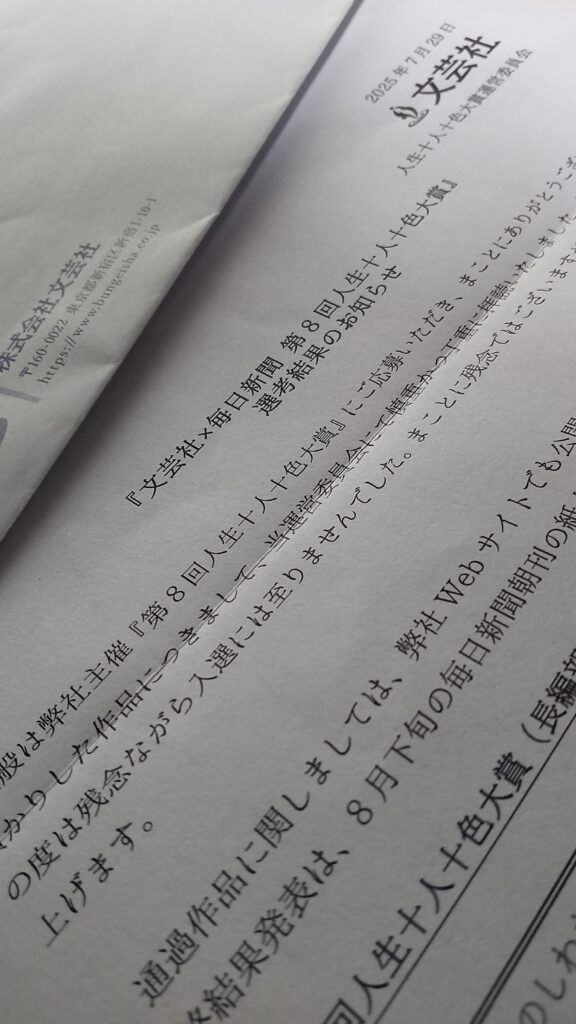 株式会社文芸社
〒160-0022 東京都新宿区新宿1-10-1
https://www.bungeisha.co.jp
2025年7月29日
文芸社
人生十人十色大賞運営委員会
『文芸社×毎日新聞 第8回人生十人十色大賞』
選考結果のお知らせ
般は弊社主催『第8回人生十人十色大賞』にご応募いただき、まことにありがとうござ
かりした作品につきまして、当運営委員会にて慎重かつ丁重に拝読いたしました
の度は残念ながら入選には至りませんでした。まことに残念ではございますが
上げます。
通過作品に関しましては、弊社Webサイトでも公開
結果発表は、8月下旬の毎日新聞朝刊の紙
回人生十人十色大賞（長編部
のしわ